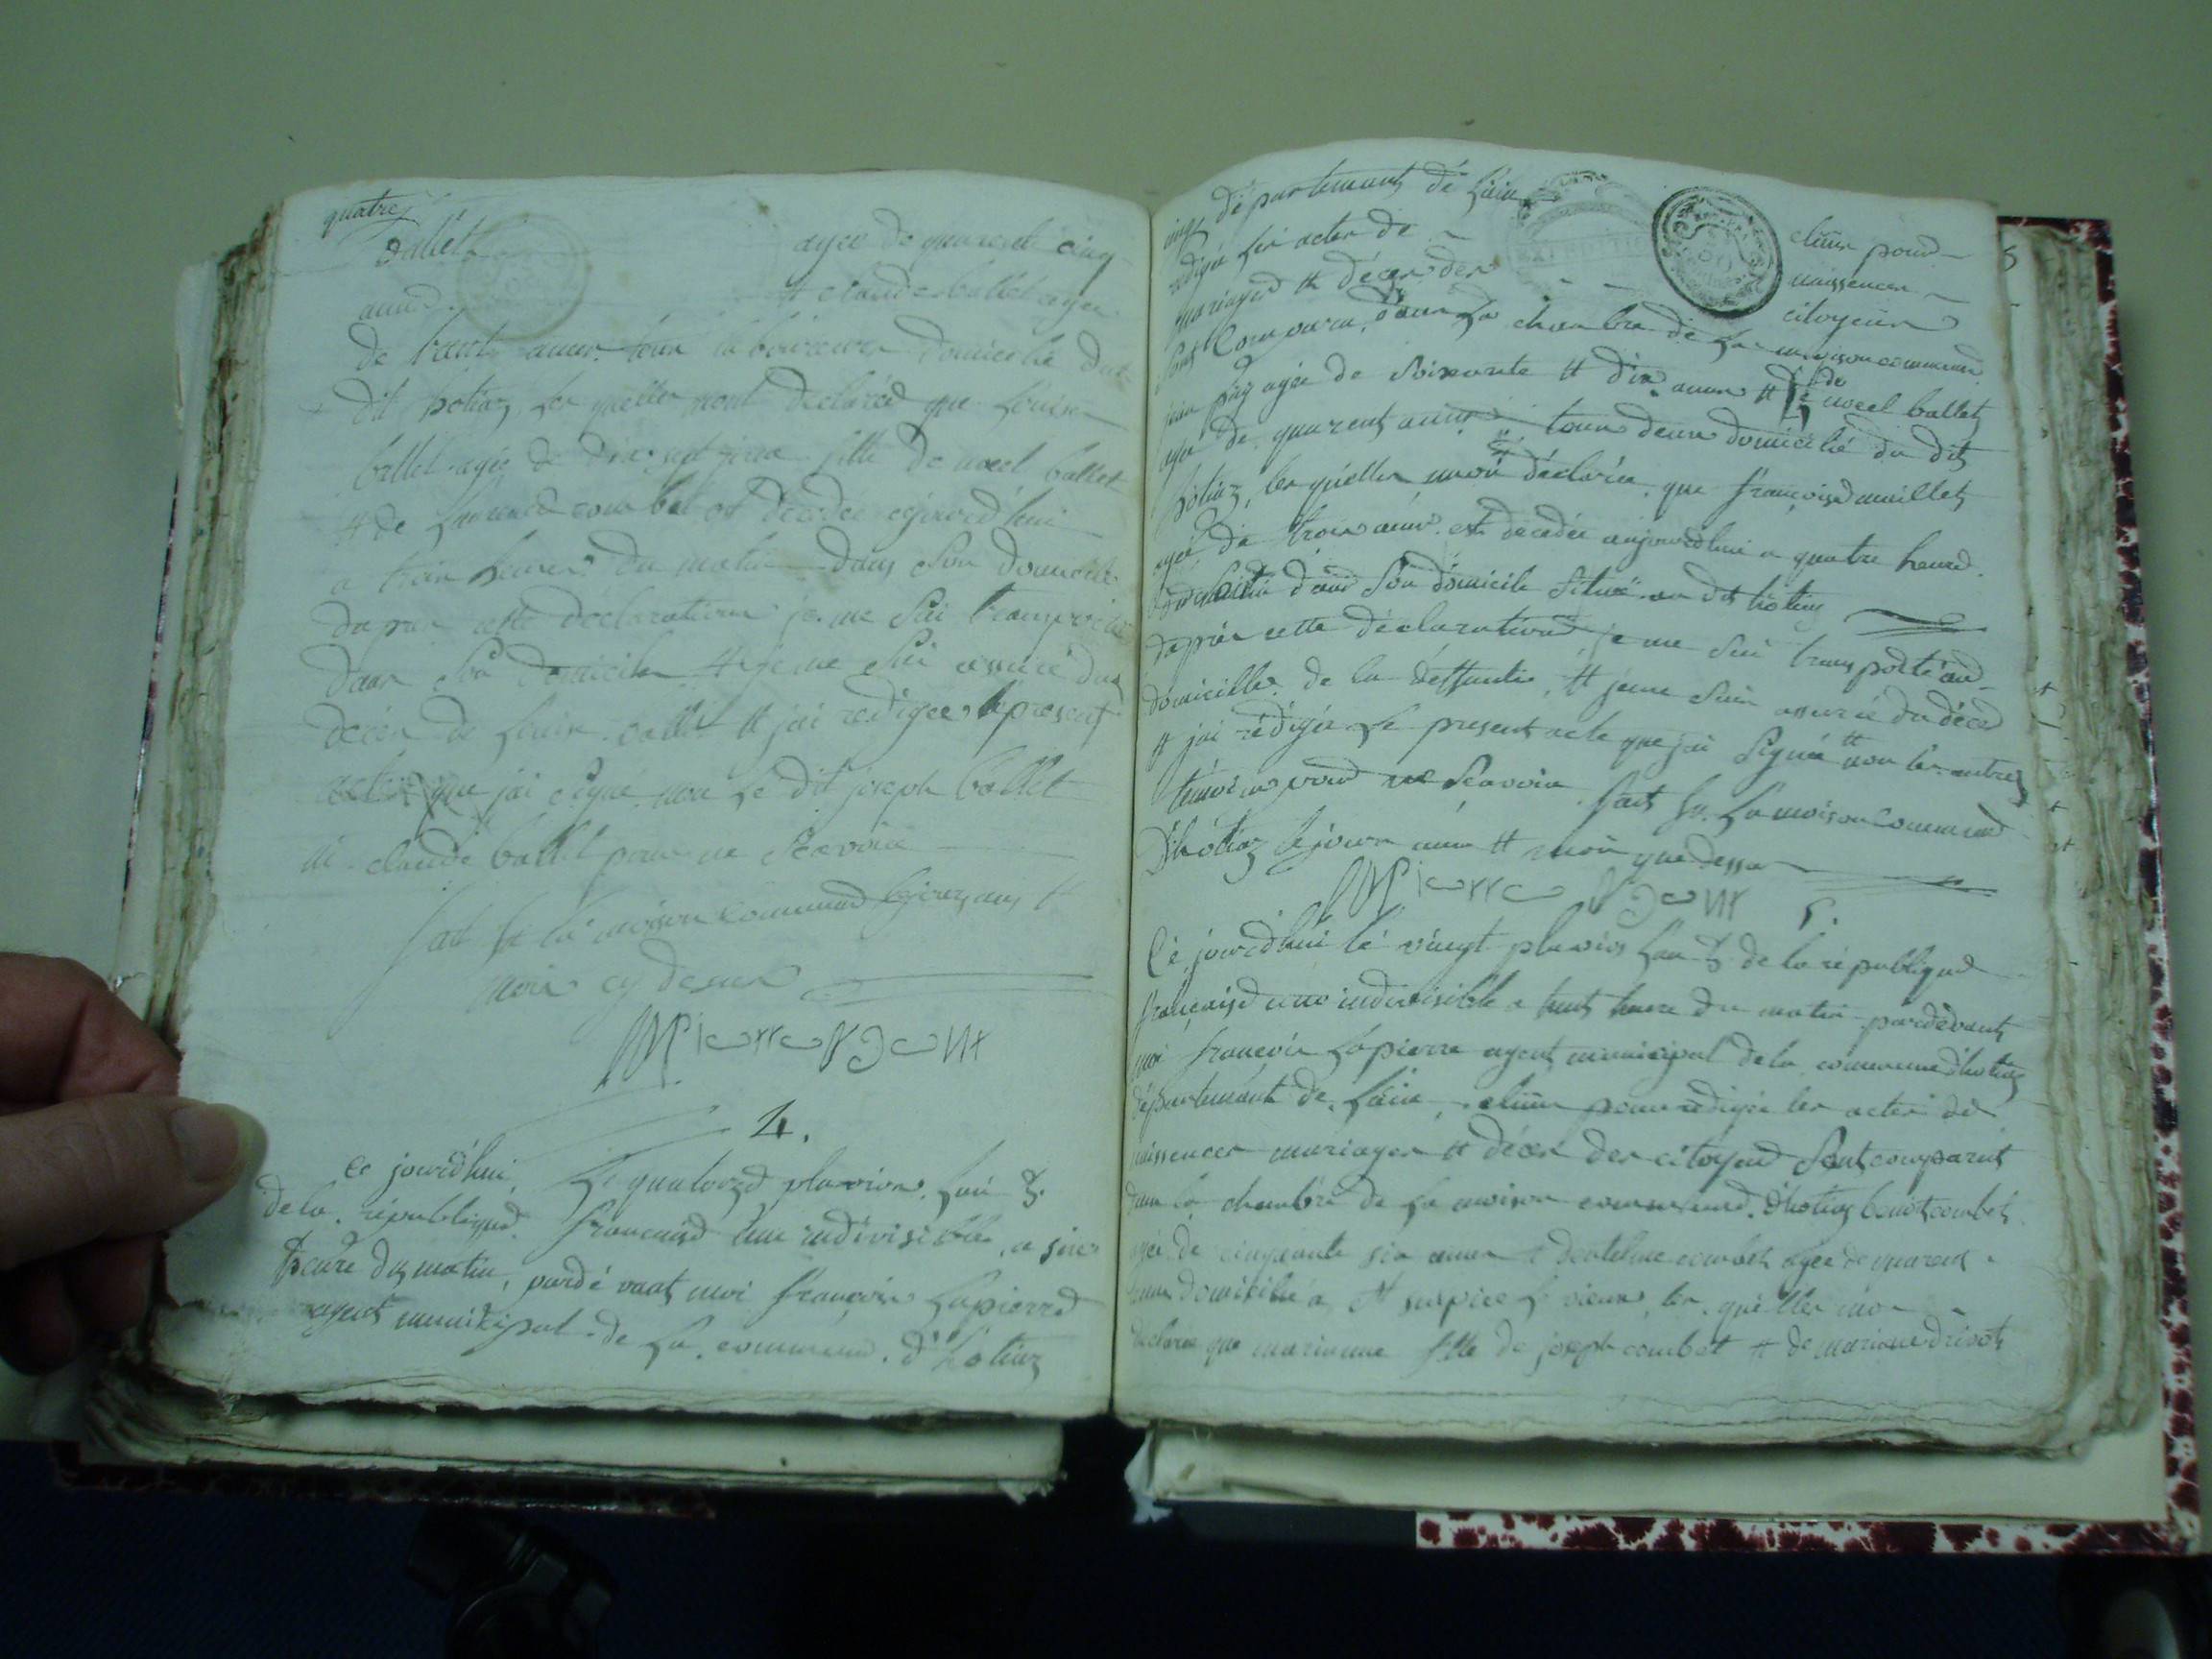 quatre
Ballet agee de quarente cinq
annes et claude ballet agee
de trent annes tous laboureur domicille du
dit hotiaz les quelles mont declared que louise
ballet agee de dix sept jour fille de noeel ballet
tt de combet est decedee ajourdhui
a troix heures du matin dans son domicile
dapres cette declaration je me sui transporté
dans son domicile tt je me sui assuré du
déces de louise ballet tt jai redigee le present
acte que jai signé non le dit joseph ballet
ni claude ballet pour ne scavoir
fait a la maison commune les jour, an, tt
mois cy dessus
4.
Ce jourdhui le quatorze pluviose lan
de la republique française une indivisible a
heure du matin, pardé vant moi françois Lapierre
agent municipal de la commune d'hotiaz
cinq département de lain elüur pour
redigee les actes de naissences
mariages tt décex des citoyeins
sont comparu dans la chambre de la maison commune
agée de soixante tt dix anns tt de noeel ballet
agé de quarent anns tous deux domicilié du dit
hotiaz, les quelles mon déclarée que françoise maillet
agé de trois anns est decedée aujourdhui a quatre heure
du matin dans son domicile situé au dit hotiaz
dapres cette déclaration je me sui transporté au
domicille de la deffunte, tt je me suis assurée du déces
tt jai rédigée le present acte que jai signée tt non les autres
temoins pour ne scavoir fait a la maison commune
d'hotiaz le jour ann tt moi que dessu
5.
Cé jourdhui lé vingt pluvios lan de la république
française une indivisible a huit heure du matin pardevant
moi françois Lapierre agent municipal de la commune dhotiaz
département de lain, elüur pour redigée les actes de
naissences mariages tt décex des citoyen sont comparut
dans la chambre de la maison commune d'hotiaz benoit combet
agée de cinquante six annes combet agée de quarent
anns domicilié a St surpice le vieux, les quelles mon
declaree que marianne fille de joseph combet tt de marianne